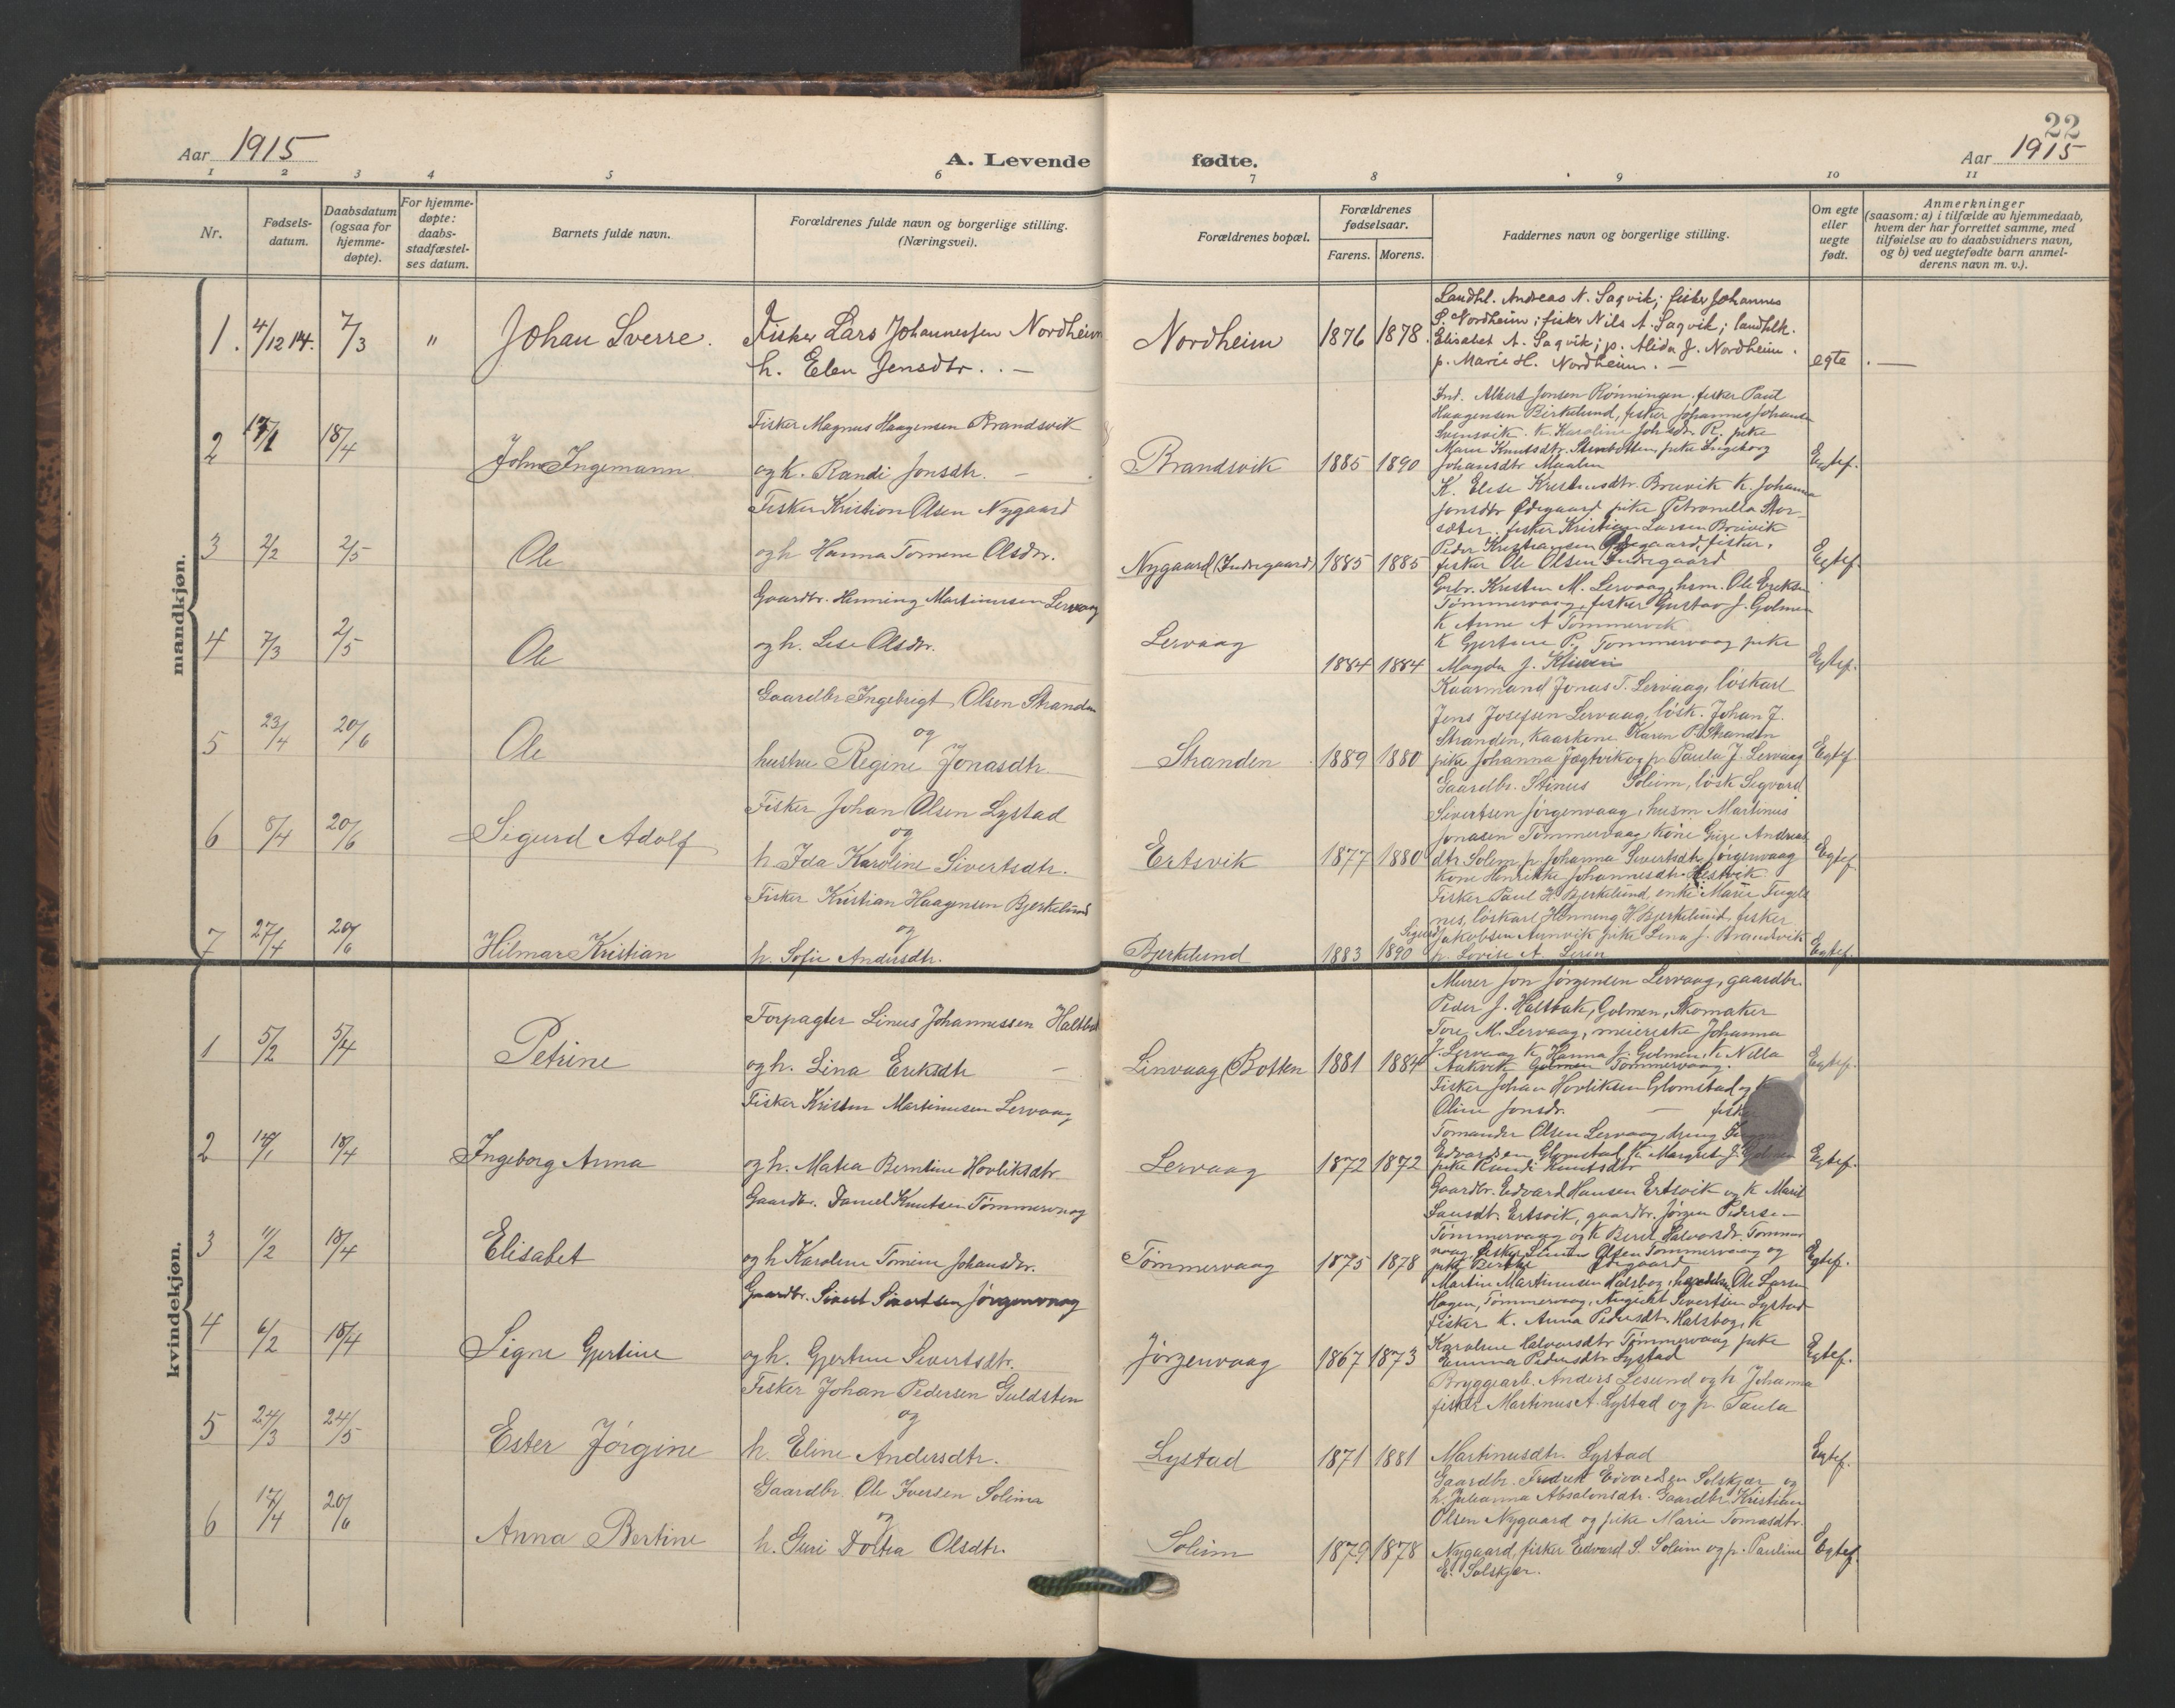 22
Aar 1915
A. Levende fødte.
Aar 1915
1 2 3 4 5 6 7 8 9 10 11
Nr.
Fødsels-datum.
Daabsdatum (ogsaa for hjemme-døpte).
For hjemme-døpte: daabs-stadfæstel-ses datum.
Barnets fulde navn.
Forældrenes fulde navn og borgerlige stilling. (Næringsvei).
Forældrenes bopæl.
Forældrenes fødselsaar.
Farens. Morens.
Faddernes navn og borgerlige stilling.
Om egte eller uegte født.
Anmerkninger
(saasom: a) i tilfælde av hjemmedaab, hvem der har forrettet samme, med tilføielse av to daabsvidners navn, og b) ved uegtefødte barn anmel-derens navn m. v.).
mandkjøn.
1. 4/12 14. 7/3 " Johan Sverre.
Fisker Lars Johannessen Nordheim
h. Elen Jensdtr. . —
Nordheim 1876 1878.
Landhl. Andreas N. Sagvik; fisker Johannes
S. Nordheim; fisker Nils A. Sagvik; landhlk.
Elisabet A. Sagvik; p. Alida J. Nordheim.
p. Marie H. Nordheim. —
egte . —
2 18/4 John Ingemann
Fisker Magnus Haagensen Brandsvik
og k. Randi Jonsdtr. —
Brandsvik 1885 1890
Ind. Albert Jonsen Rønningen, fisker Paul
Haagensen Birkelund, fisker Johannes Johansen
Svensvik. K. Karoline Johsdr. R. pike
Maren Knutsdtr. Stenbotten, pike Ingeborg
Johansdtr. Maalen
Egtef.
3 2/2 2/5 Ole
Fisker Kristian Olsen Nygaard
og h Hanna Tomine Olsdtr.
Nygaard (Indregaard) 1885 1885
K. Elise Kristensdtr. Breivik K. Johanna
Jonsdtr Ødegaard pike Petronella Stor-
sæter, fisker Kristian Larsen Breivik
Peder Kristiansen Ødegaard, fisker,
fisker Ole Olsen Indregaard
Egtef.
4 7/3 2/5 Ole
Gaardbr. Henning Martinussen Lervaag
og h. Lise Olsdtr.
Lervaag 1884 1884
Grbr. Kristen M. Lervaag, hsm. Ole Eriksen
Tømmervaag, fisker Gustav J. Golmen
K Anne A Tømmervik
K Gjertine P. Tømmervaag pike
Magda J.
Egtef.
5 23/4 20/6 Ole
Gaardbr Ingebrigt Olsen Stranden
og
hustru Regine Jonasdtr
Stranden 1889 1880
Kaarmand Jonas T. Lervaag, løskarl
Jens Josefsen Lervaag, løsk. Johan J.
Stranden, kaarkone Karen P. Stranden
pike Johanna Jægtvik og p. Paula J. Lervaag
Egtef
6 8/4 20/6 Sigurd Adolf
Fisker Johan Olsen Lystad
og
h. Ida Karoline Sivertsdtr.
Ertsvik 1877 1880
Gaardbr. Stinus Soleim, løsk Sigvard
Sivertsen Jørgenvaag, husm Martinus
Jonasen Tømmervaag, kone Guri Andreas
dtr Solem p. Johanna Sivertsdtr Jørgenvaag
kone Henrikke Johannesdtr. Hestvik
Egtef
7 27/4 20/6 Hilmar Kristian
Fisker Kristian Haagensen Bjerkelund
og
h. Sofie Andersdtr.
Bjerkelund 1883 1890
Fisker Paul H. Bjerkelund, enke Marie Fugle
nes, løskarl Henning H. Bjerkelund, fisker
Sigurd Jakobsen Aunvik pike Lina J. Brandsvik
p. Lovise A. Leren
Egtef.
kvindekjøn.
1 5/2 5/4 Petrine
Forpagter Linus Johannessen
og h. Lina Eriksdtr —
Linvaag (Botten 1881 1884
Murer Jon Jørgensen Lervaag, gaardbr.
Peder J. Haltbak, Golmen, Skomaker
Tore M. Lervaag, meierske Johanna
J. Lervaag K. Hanna J. Golmen, K Nilla
Aakvik Golmen Tømmervaag.
Egtef.
2 18/4 Ingeborg Anna
Fisker Kristen Martinusen Lervaag
og h. Matea Berntine Hovliksdtr
Lervaag 1872 1872
Fisker Johan Hovliksen Glomstad og K
Oline Jonsdr. —
Tomander Olsen Lervaag dreng
Edvardsen Glomstad K. Margret J. Golmen
pike Randi Knutsdtr
Egtef.
3 18/4 Elisabet
Gaardbr. Daniel Knutsen Tømmervaag
og h Karoline Tomine Johansdtr.
Tømmervaag 1875 1878
Gaardbr. Edvard Hansen Ertsvik og K Marit
Ertsvik, gaardbr. Jørgen Pedersen
Tømmervaag og K Beret Halvorsdr. Tømmer
vaag fisker Olsen Tømmervaag og
pike Berthe Ødegaard
Egtef.
4 6/2 18/4 Signe Gjertine
Gaardbr. Sivert Sivertsen Jørgenvaag
og h. Gjertine Sivertsdtr.
Jørgenvaag 1867 1873
Martin Martinusen Halsbog, Ole Larsen
Hagen, Tømmervaag, August Sivertsen Lystad
fisker K. Anna Pedersdtr. Halsbog, K
Karoline Halvorsdtr Tømmervaag pike
Emma Pedersdtr Lystad
Egtef.
5 24/3 24/5 Ester Jørgine
Fisker Johan Pedersen Guldsten
og
h. Eline Andersdtr.
Lystad 1871 1881
Bryggearb. Anders Lesund og h. Johanna
fisker Martinus A. Lystad og p. Paula
Martinusdtr. Lystad
Egtef.
6 17/4 20/6 Anna Bertine
Gaardbr. Ole Iversen Solim
og
h. Guri Dortea Olsdtr.
Soleim 1879 1878
Gaardbr. Fredrik Edvardsen Solskjær og
h. Julianna Absalonsdtr. Gaardbr. Kristian
Olsen Nygaard og pike Marie Tomasdtr.
Nygaard, fisker Edvard S. Soleim og p. Pauline
E. Solskjær.
Egtef.